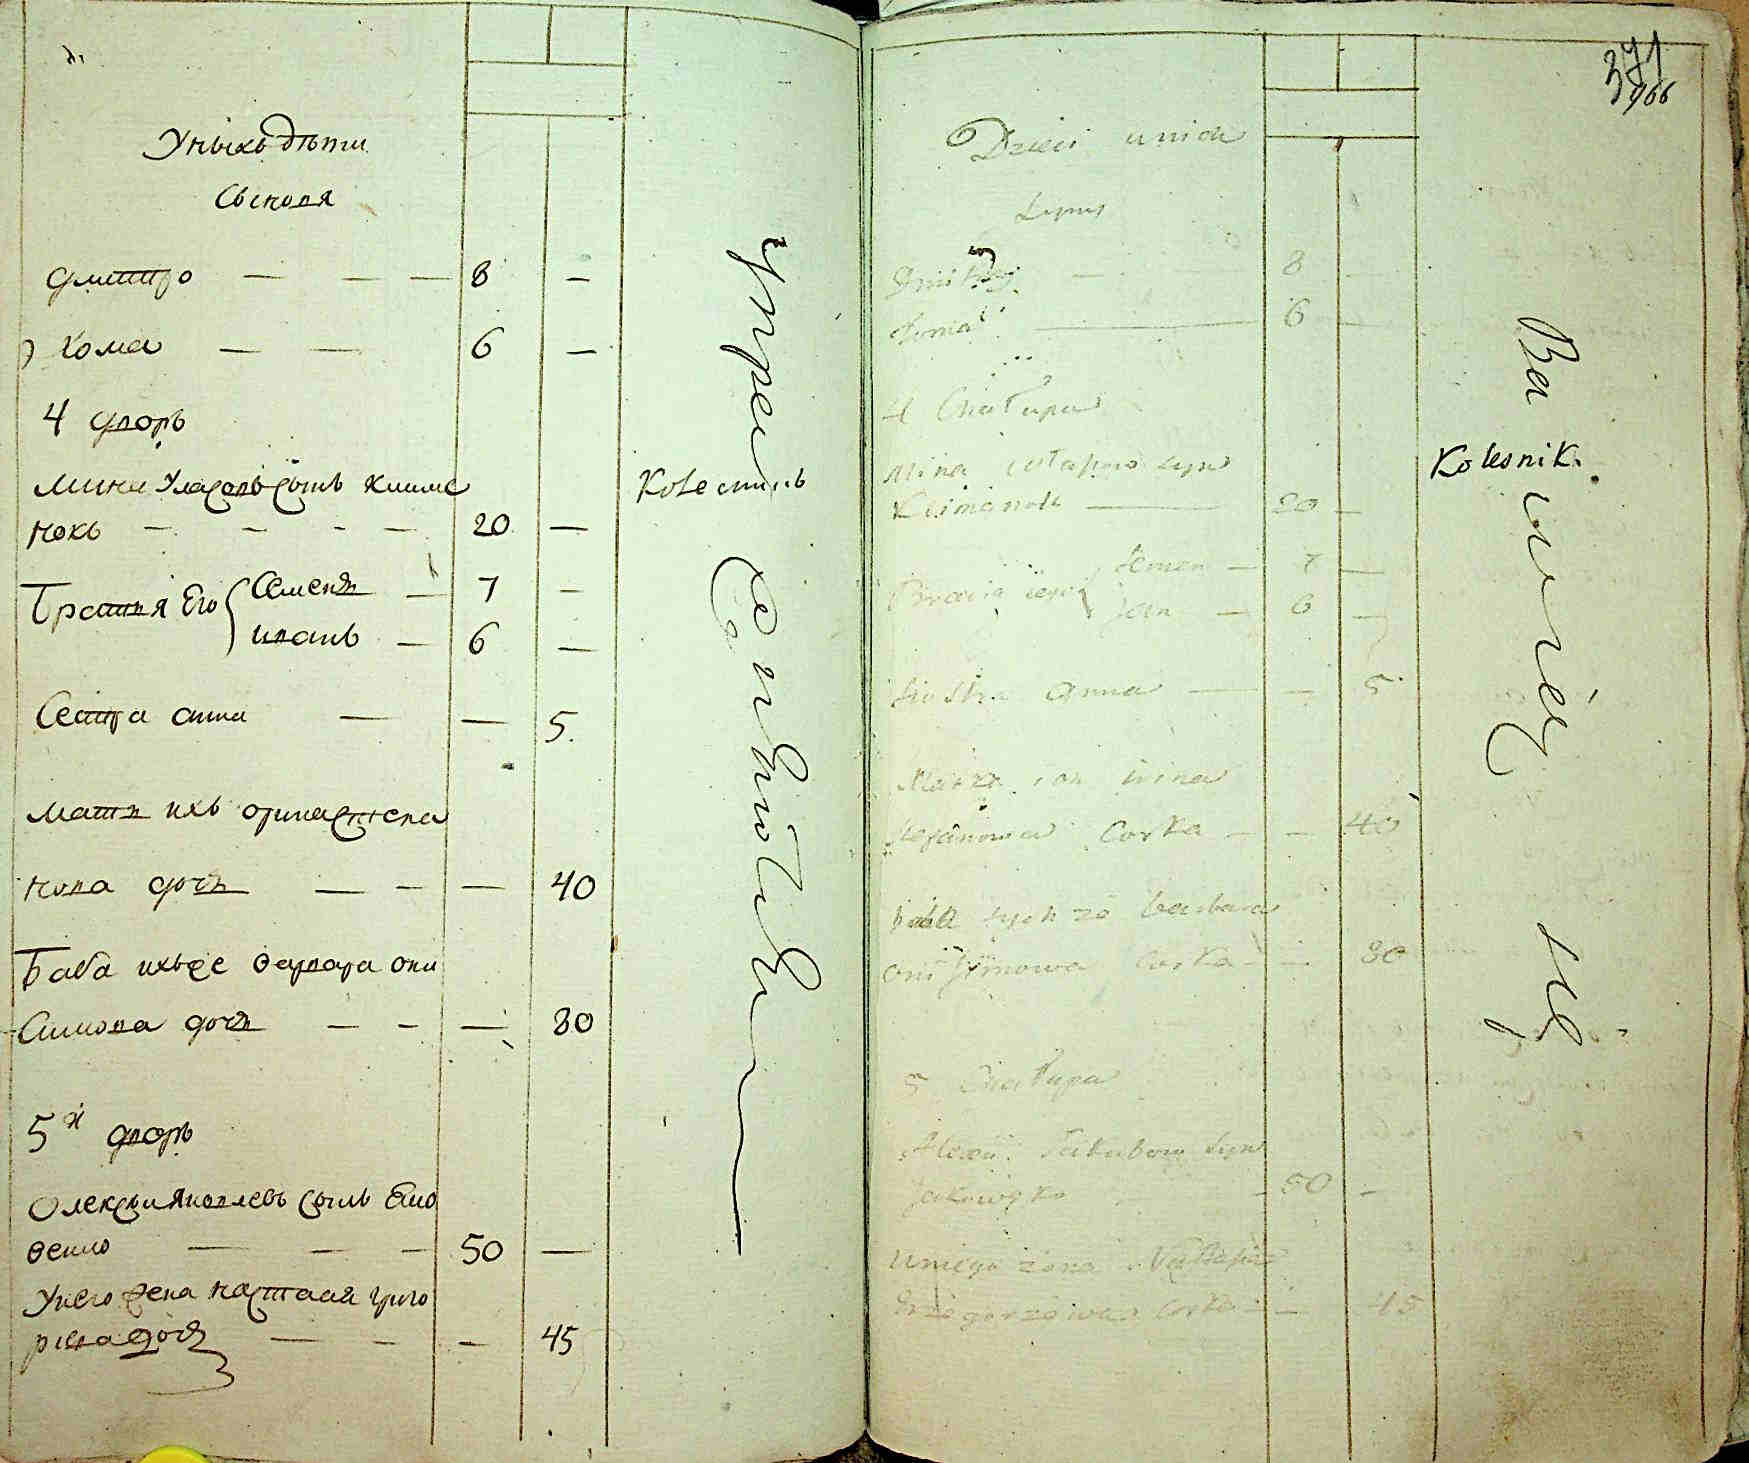 Уныхъ дѣти
Сынове
Дмитро — — — 8 —
Хома — — 6 —
4 дворъ
Мина Уласовъ сынъ Климе
нокъ — — — — 20 —
Братья Его { Семенъ — 7 —
иванъ — 6 —
Сестра анна — — 5.
Мати ихъ орина степа
нова дочь — — — 40
Баба ихъже варвара они
симова дочь — — — 80
5й дворъ
Олексѣи Яковлевъ сынъ
50 —
Унего жена настася григо
риева дочь — — — 45
Колесникъ
371
966
Dzieci unich
Synus
Dmitry — 8 —
Homa — 6 —
4 Chałupa
Mina syn
Klimenok — 20 —
Bracia iego { Semen — 7 —
Jan — 6 —
Siostra Anna — — 5
Matka ich Irina
Stefanowa Corka — — 40
baba tych ze barbara
Onisymowa Corka — — 80
5 Chałupa
Alexii Jakubow Syn
— 50 —
Uniego żona Nastasia
Grzegorzowa Corka — — 45
Kolesnik.